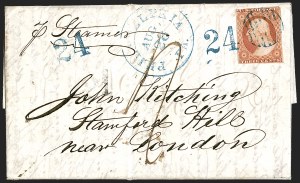 p Steamer
24
24
AUG
John Kitching
Stamford Hill
near London